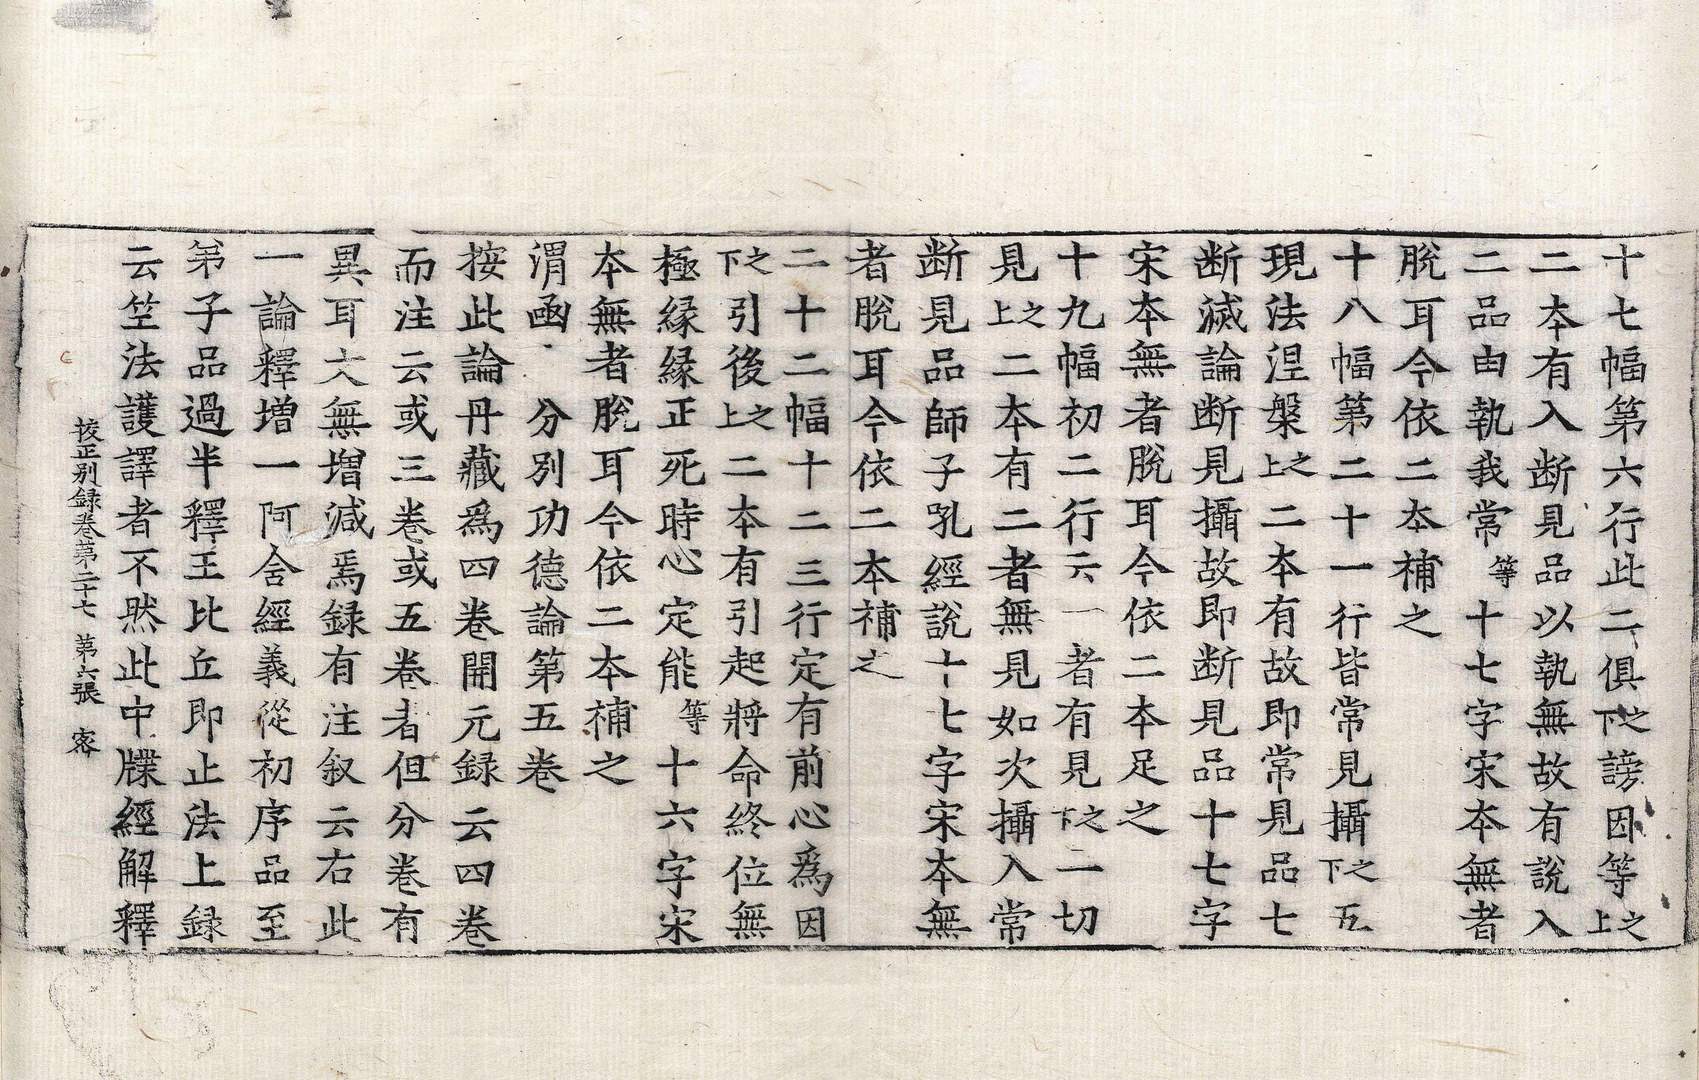 十七幅第六行此二俱之下謗因等之上
二本有入断見品以執無故有說入
二品由執我常等十七字宋本無者
脫耳今依二本補之
十八幅第二十一行皆常見攝之下五
現法涅槃之上二本有故即常見品七
断滅論断見攝故即断見品十七字
宋本無者脫耳今依二本足之
十九幅初二行云一者有見之下一切
見之上二本有二者無見如次攝入常
断見品師子吼經說十七字宋本無
者脫耳今依二本補之
二十二幅十二三行定有前心為因
之下引後之上二本有引起將命終位無
極縁縁正死時心定能等十六字宋
本無者脫耳今依二本補之
渭函 分別功德論第五卷
按此論丹藏為四卷開元録云四卷
而注云或三卷或五卷者但分卷有
異耳大無增減焉録有注叙云右此
一論釋增一阿含經義從初序品至
弟子品過半釋王比丘即止法上録
云竺法護譯者不然此中牒經解釋
挍正別録卷第二十七 第六張 密